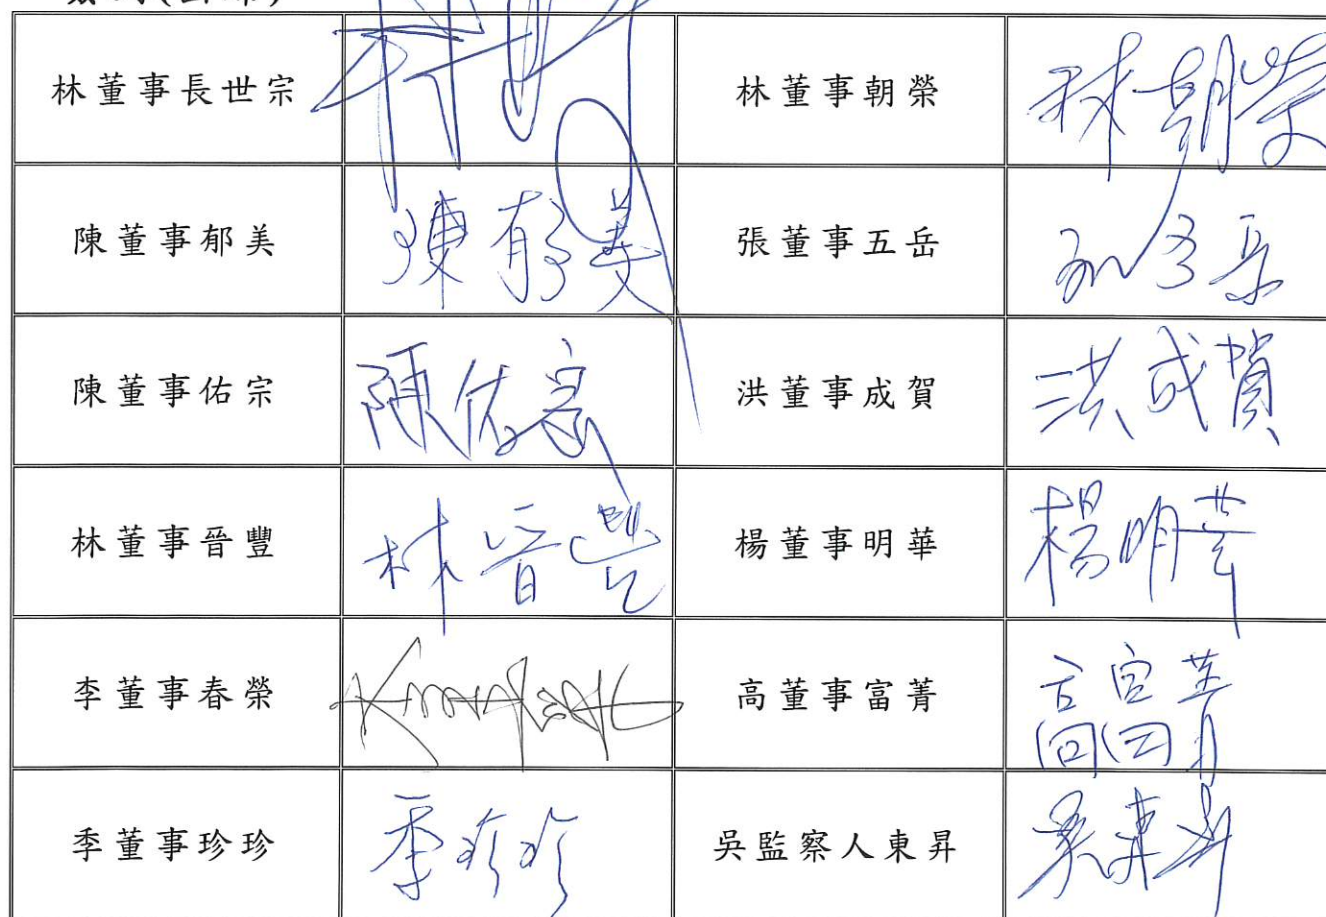 林董事長世宗 林董事朝榮 林朝榮
陳董事郁美 陳郁美 張董事五岳
陳董事佑宗 陳佑宗 洪董事成賀 洪成賀
林董事晉豐 林晉豐 楊董事明華 楊明華
李董事春榮 高董事富菁 高富菁
季董事珍珍 季珍珍 吳監察人東昇 吳東昇